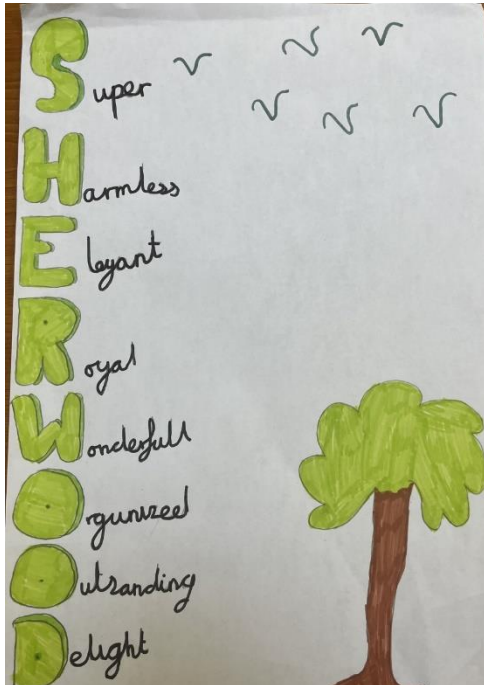 Super
Harmless
Elegant
Royal
Wonderfull
Orgunized
Outsanding
Delight